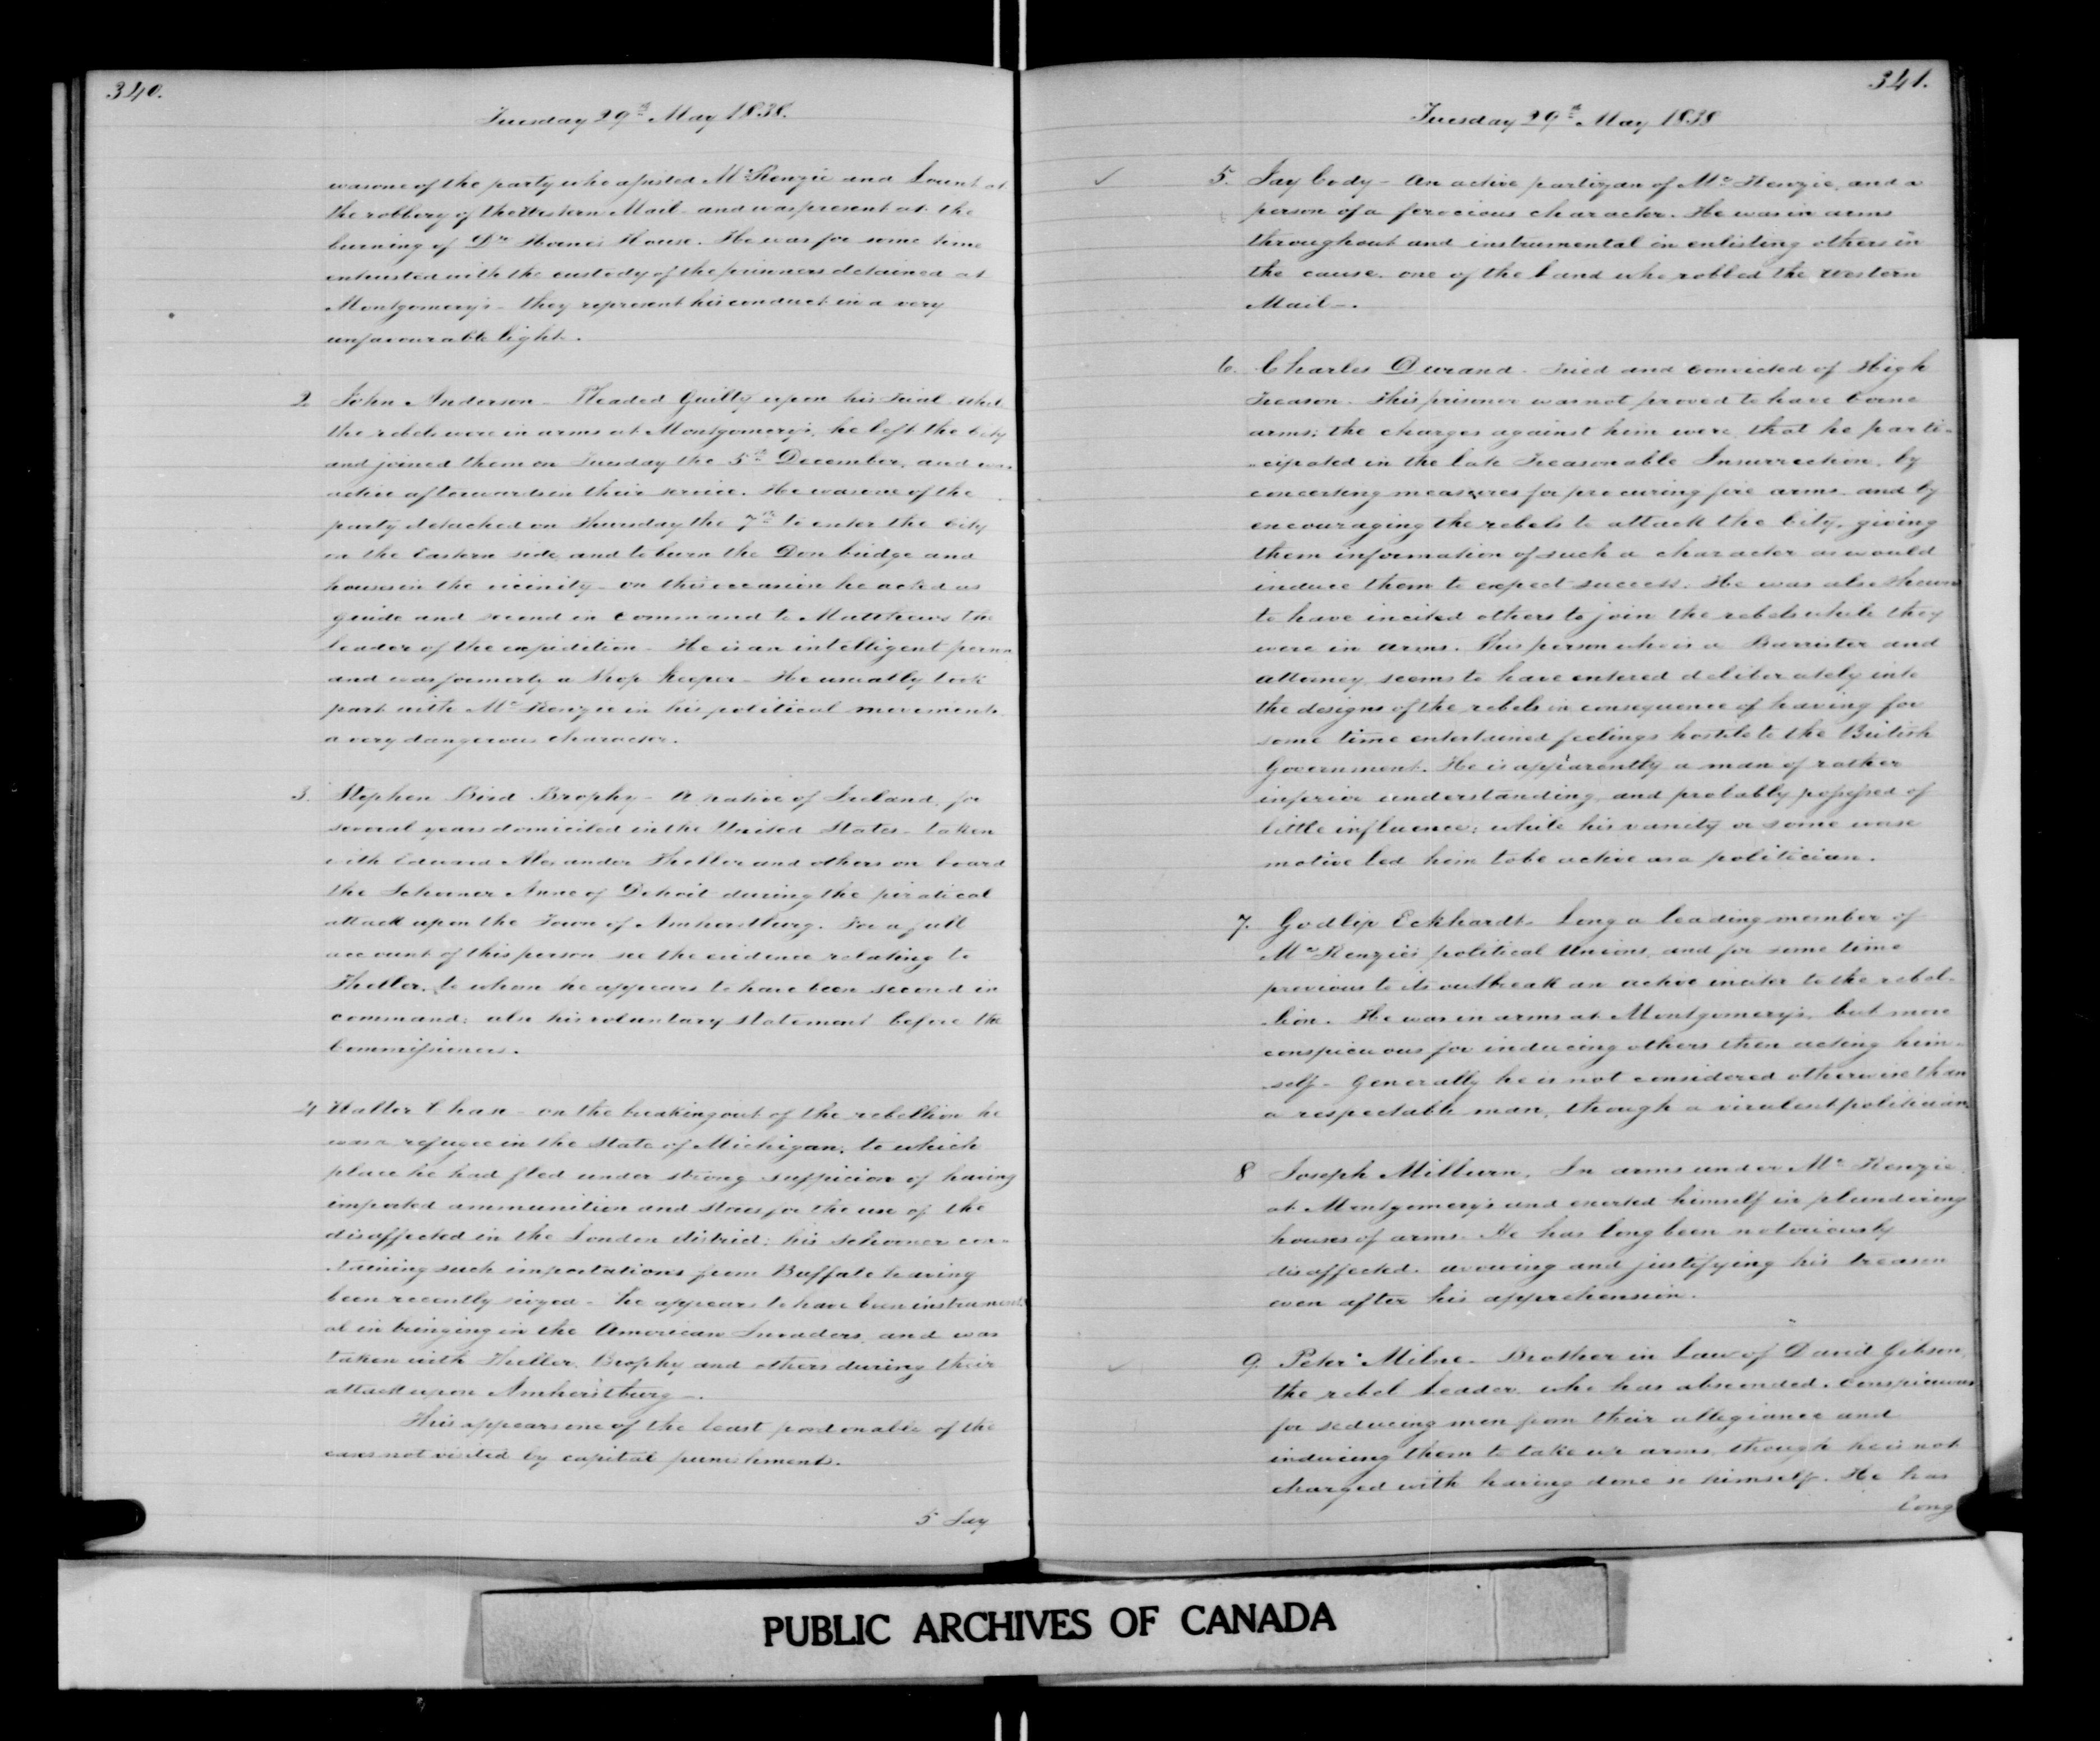 340.
Tuesday 29th May 1838.
was one of the party who assisted McKenzie and Lount at
the robbery of the Western Mail and was present at the
burning of Dr Horne's House. He was for some time
entrusted with the custody of the prisoners detained at
Montgomery's - they represent his conduct in a very
unfavourable light.
2 John Anderson - Pleaded Guilty upon his Trial
the rebels were in arms at Montgomery's, he left the City
and joined them on Tuesday the 5th December, and was
active afterwards in their service. He was one of the
party detached on Thursday the 7th to enter the City
on the Eastern side, and to burn the Don bridge and
houses in the vicinity - on this occasion he acted as
guide and second in Command to Matthews the
leader of the expedition - He is an intelligent person
and was formerly a Shop Keeper - He usually took
part with McKenzie in his political movements
a very dangerous character.
3. Stephen Bird Brophy - A native of Ireland, for
several years domiciled in the United States - taken
with Edward Alexander Theller and others on board
the Schooner Anne of Detroit during the piratical
attack upon the Town of Amherstburg. For a full
account of this person see the evidence relating to
Theller, to whom he appears to have been second in
command: also his voluntary statement before the
Commissioners.
4 Walter Chase - on the breaking out of the rebellion he
was a refugee in the State of Michigan, to which
place he had fled under strong suspicion of having
imported ammunition and stores for the use of the
disaffected in the London district: his schooner con-
-taining such importations from Buffalo having
been recently seized - he appears to have been instrument-
al in bringing in the American Invaders, and was
taken with Theller, Brophy and others during their
attack upon Amherstburg -.
This appears one of the least pardonable of the
cases not visited by capital punishments.
5 Jay
341.
Tuesday 29th May 1838
5. Jay Cody - An active partizan of McKenzie, and a
person of a ferocious character. He was in arms
throughout and instrumental in enlisting others in
the cause. one of the band who robbed the Western
Mail -.
6. Charles Durand. Tried and Convicted of High
Treason. This prisoner was not proved to have borne
arms; the charges against him were, that he parti-
-cipated in the late Treasonable Insurrection, by
concerting measures for procuring fire arms, and by
encouraging the rebels to attack the City, giving
them information of such a character as would
induce them to expect success. He was also shewn
to have incited others to join the rebels while they
were in arms. This person who is a Barrister and
attorney seems to have entered deliberately into
the designs of the rebels in consequence of having for
some time entertained feelings hostile to the British
Government. He is apparently a man of rather
inferior understanding, and probably possessed of
little influence; while his vanity or some worse
motive led him to be active as a politician.
7. Godlip Eckhardt. Long a leading member of
McKenzie's political Unions, and for some time
previous to its outbreak an active inciter to the rebel-
-lion. He was in arms at Montgomery's, but more
conspicuous for inducing others then acting him-
-self - Generally he is not considered otherwise than
a respectable man, though a virulent politician.
8 Joseph Milburn. In arms under McKenzie
at Montgomery's and exerted himself in plundering
houses of arms. He has long been notoriously
disaffected. avowing and justifying his treason
even after his apprehension.
9. Peter Milne. Brother in Law of David Gibson,
the rebel Leader who has absconded. Conspicuous
for seducing men from their allegiance and
inducing them to take up arms, though he is not
charged with having done so himself. He has
long
PUBLIC ARCHIVES OF CANADA